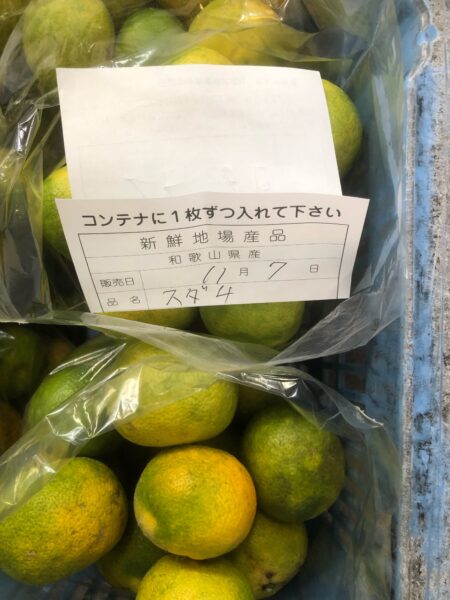 コンテナに1枚ずつ入れて下さい
新鮮地場産品
和歌山県産
販売日 11月7日
品名 スダチ